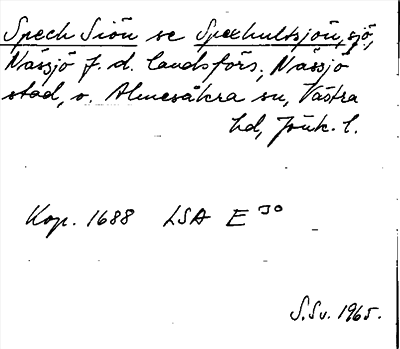 Spech Siön se Spexhultsjön, sjö,
Nässjö f. d. landsförs., Nässjö
stad, o. Almesåkra sn, Västra
hd, Jönk. l.
Kop. 1688 LSA E 30
S.Sv. 1965.